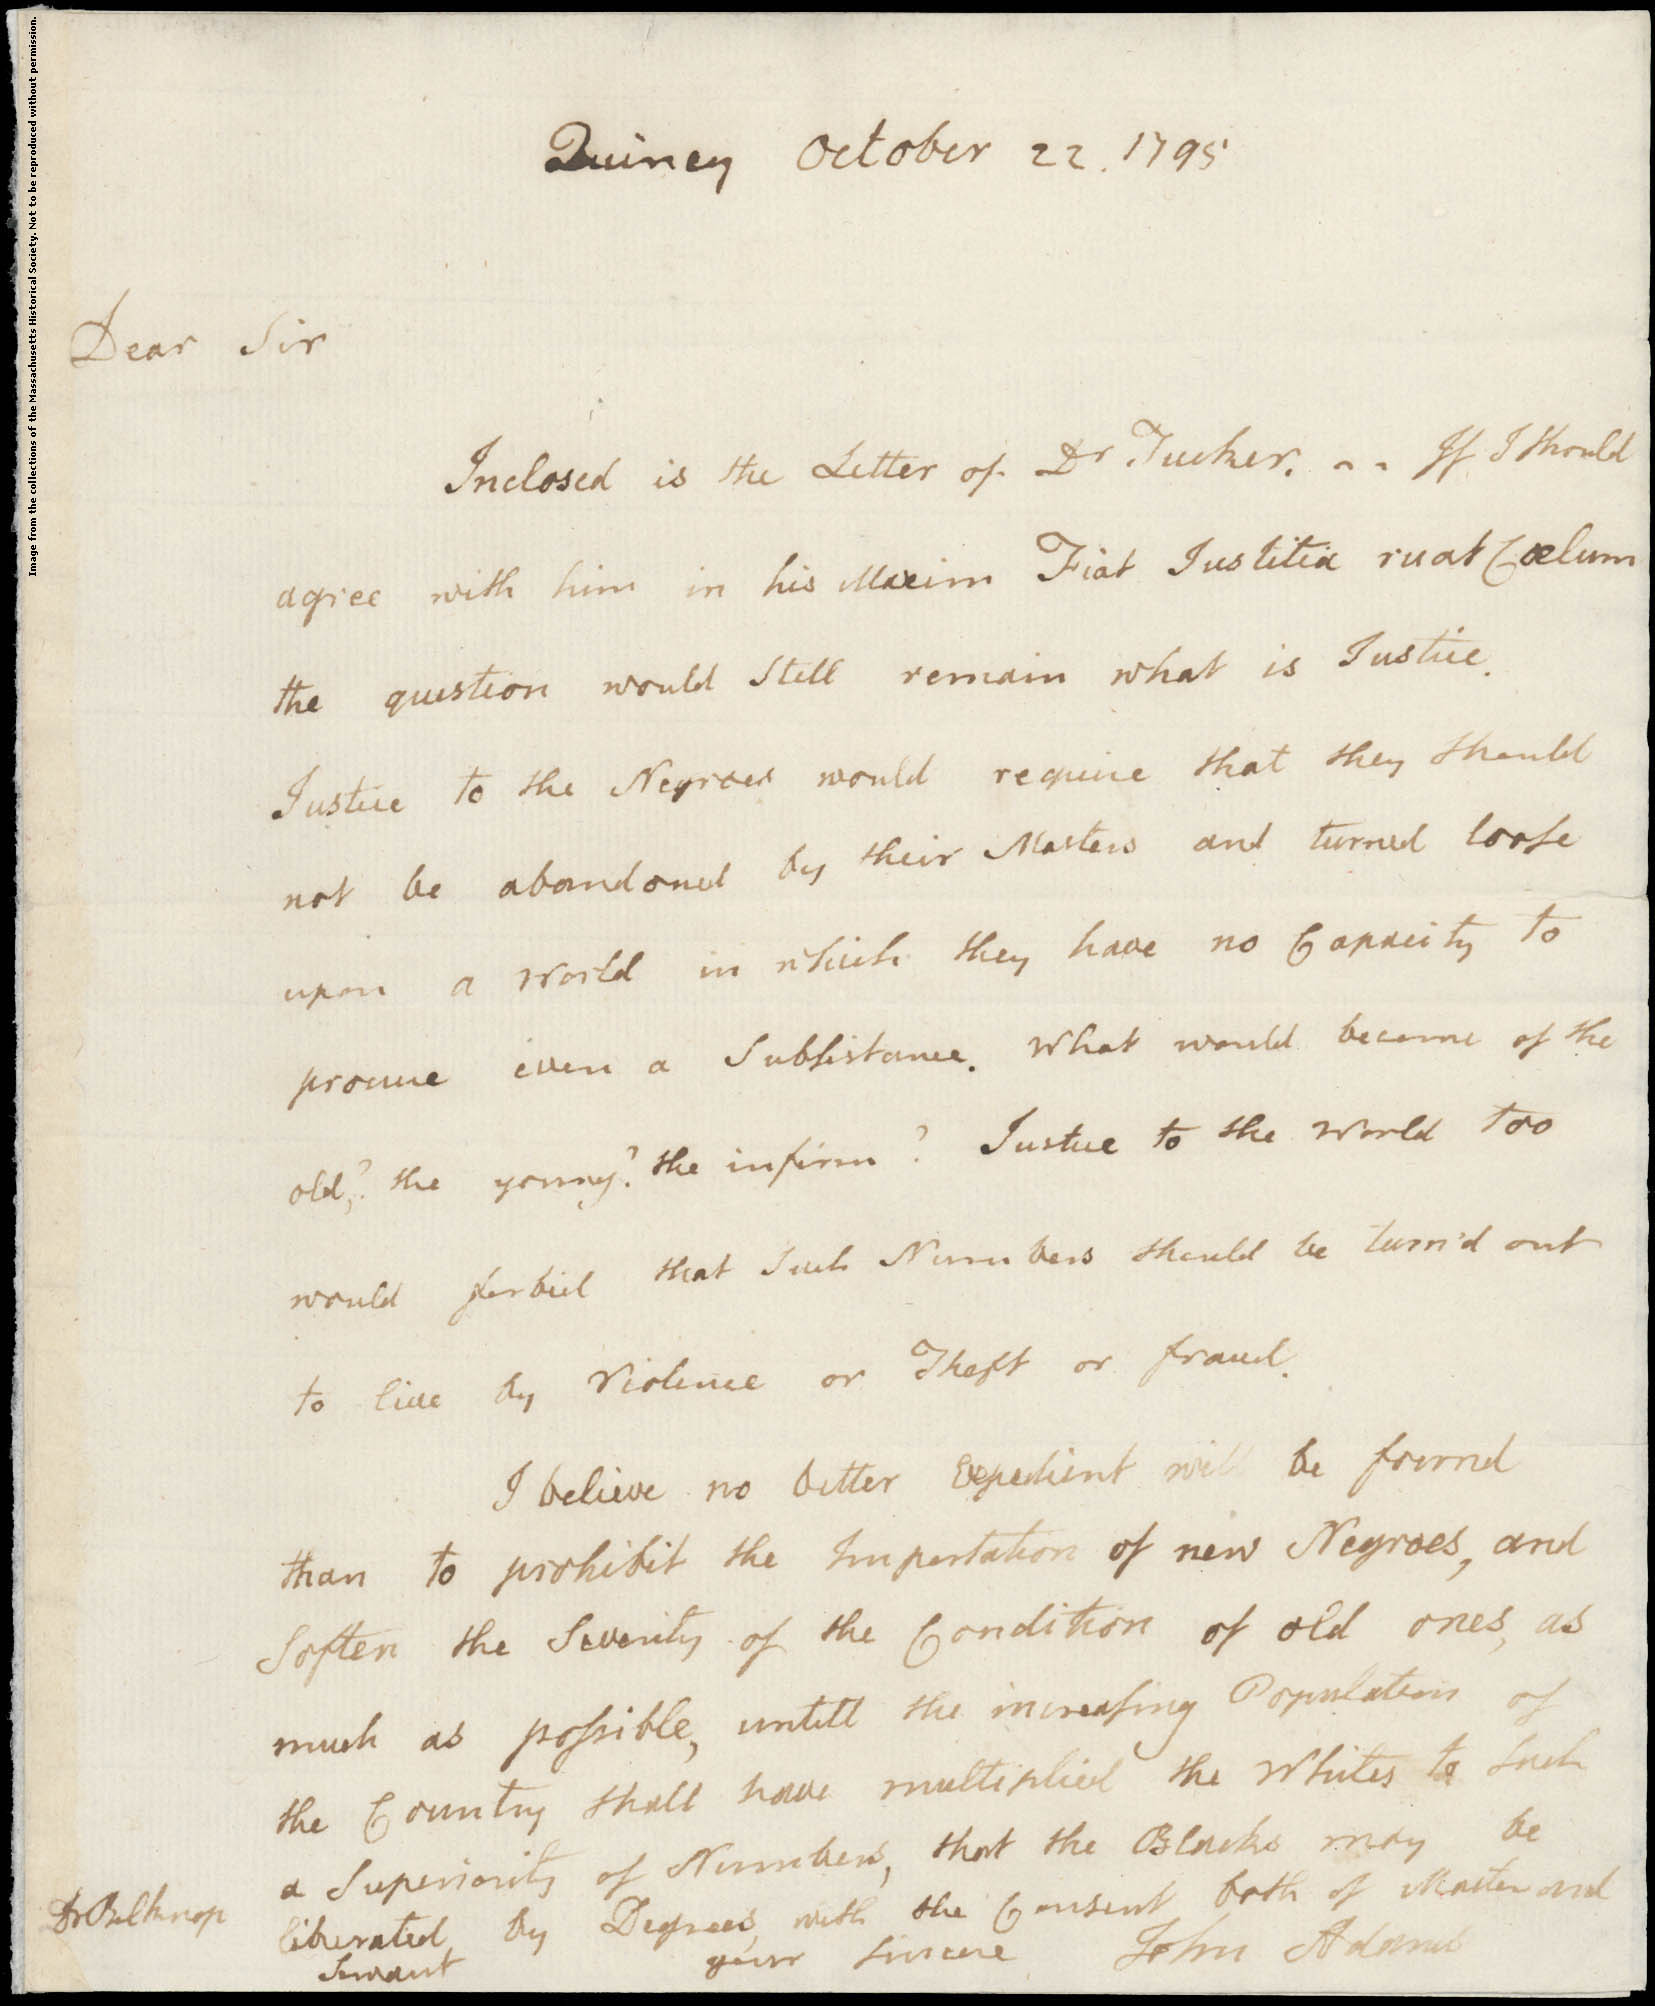 Image from the collections of the Massachusetts Historical Society. Not to be reproduced without permission.
Quincy October 22. 1795
Dear Sir
Inclosed is the Letter of Dr Tucker. - - If I should
agree with him in his Maxim Fiat Justitia ruat Cœlum
the question would Still remain what is Justice.
Justice to the Negroes would require that they should
not be abandoned by their Masters and turned loose
upon a World in which they have no Capacity to
procure even a Subsistance. What would become of the
old,? the young? the infirm? Justice to the World too
would forbid that Such Numbers should be turn'd out
to live by Violence or Theft or fraud.
I believe no better Expedient will be found
than to prohibit the Importation of new Negroes, and
Soften the Severity of the Condition of old ones, as
much as possible, untill the increasing Population of
the Country shall have multiplied the Whites to such
a Superiority of Numbers, that the Blacks may be
liberated by Degrees, with the Consent both of Master and
Servant your sincere John Adams
Dr Belknap